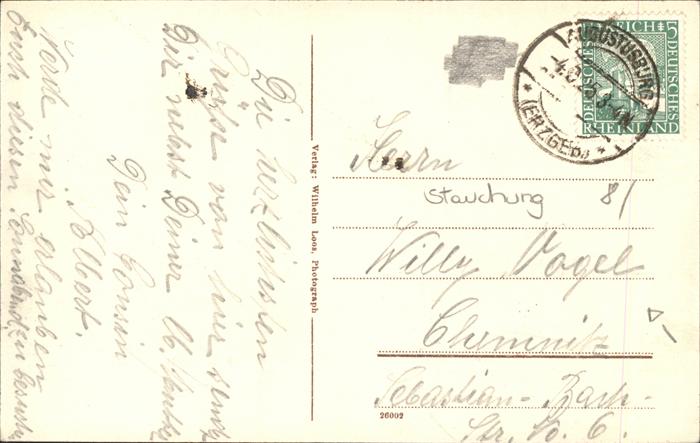 Die herzlichsten
Grüße von hier sendet
Dir nebst Deiner lb.
Dein Cousin
Albert.
Werde mir erlauben
Euch diesen Sonnabend zu besuchen
Verlag: Wilhelm Loos, Photograph
26002
AUGUSTUSBURG
(ERZGEB.)
DEUTSCHES REICH 5
DEUTSCHES
RHEINLAND
Herrn
Stauchung 8/
Willy Vogel
Chemnitz
Sebastian-Bach-
Str. No. 6.